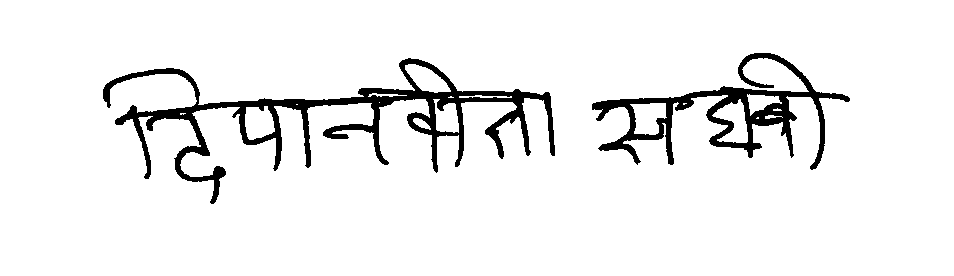 दिपानवीता संघवी